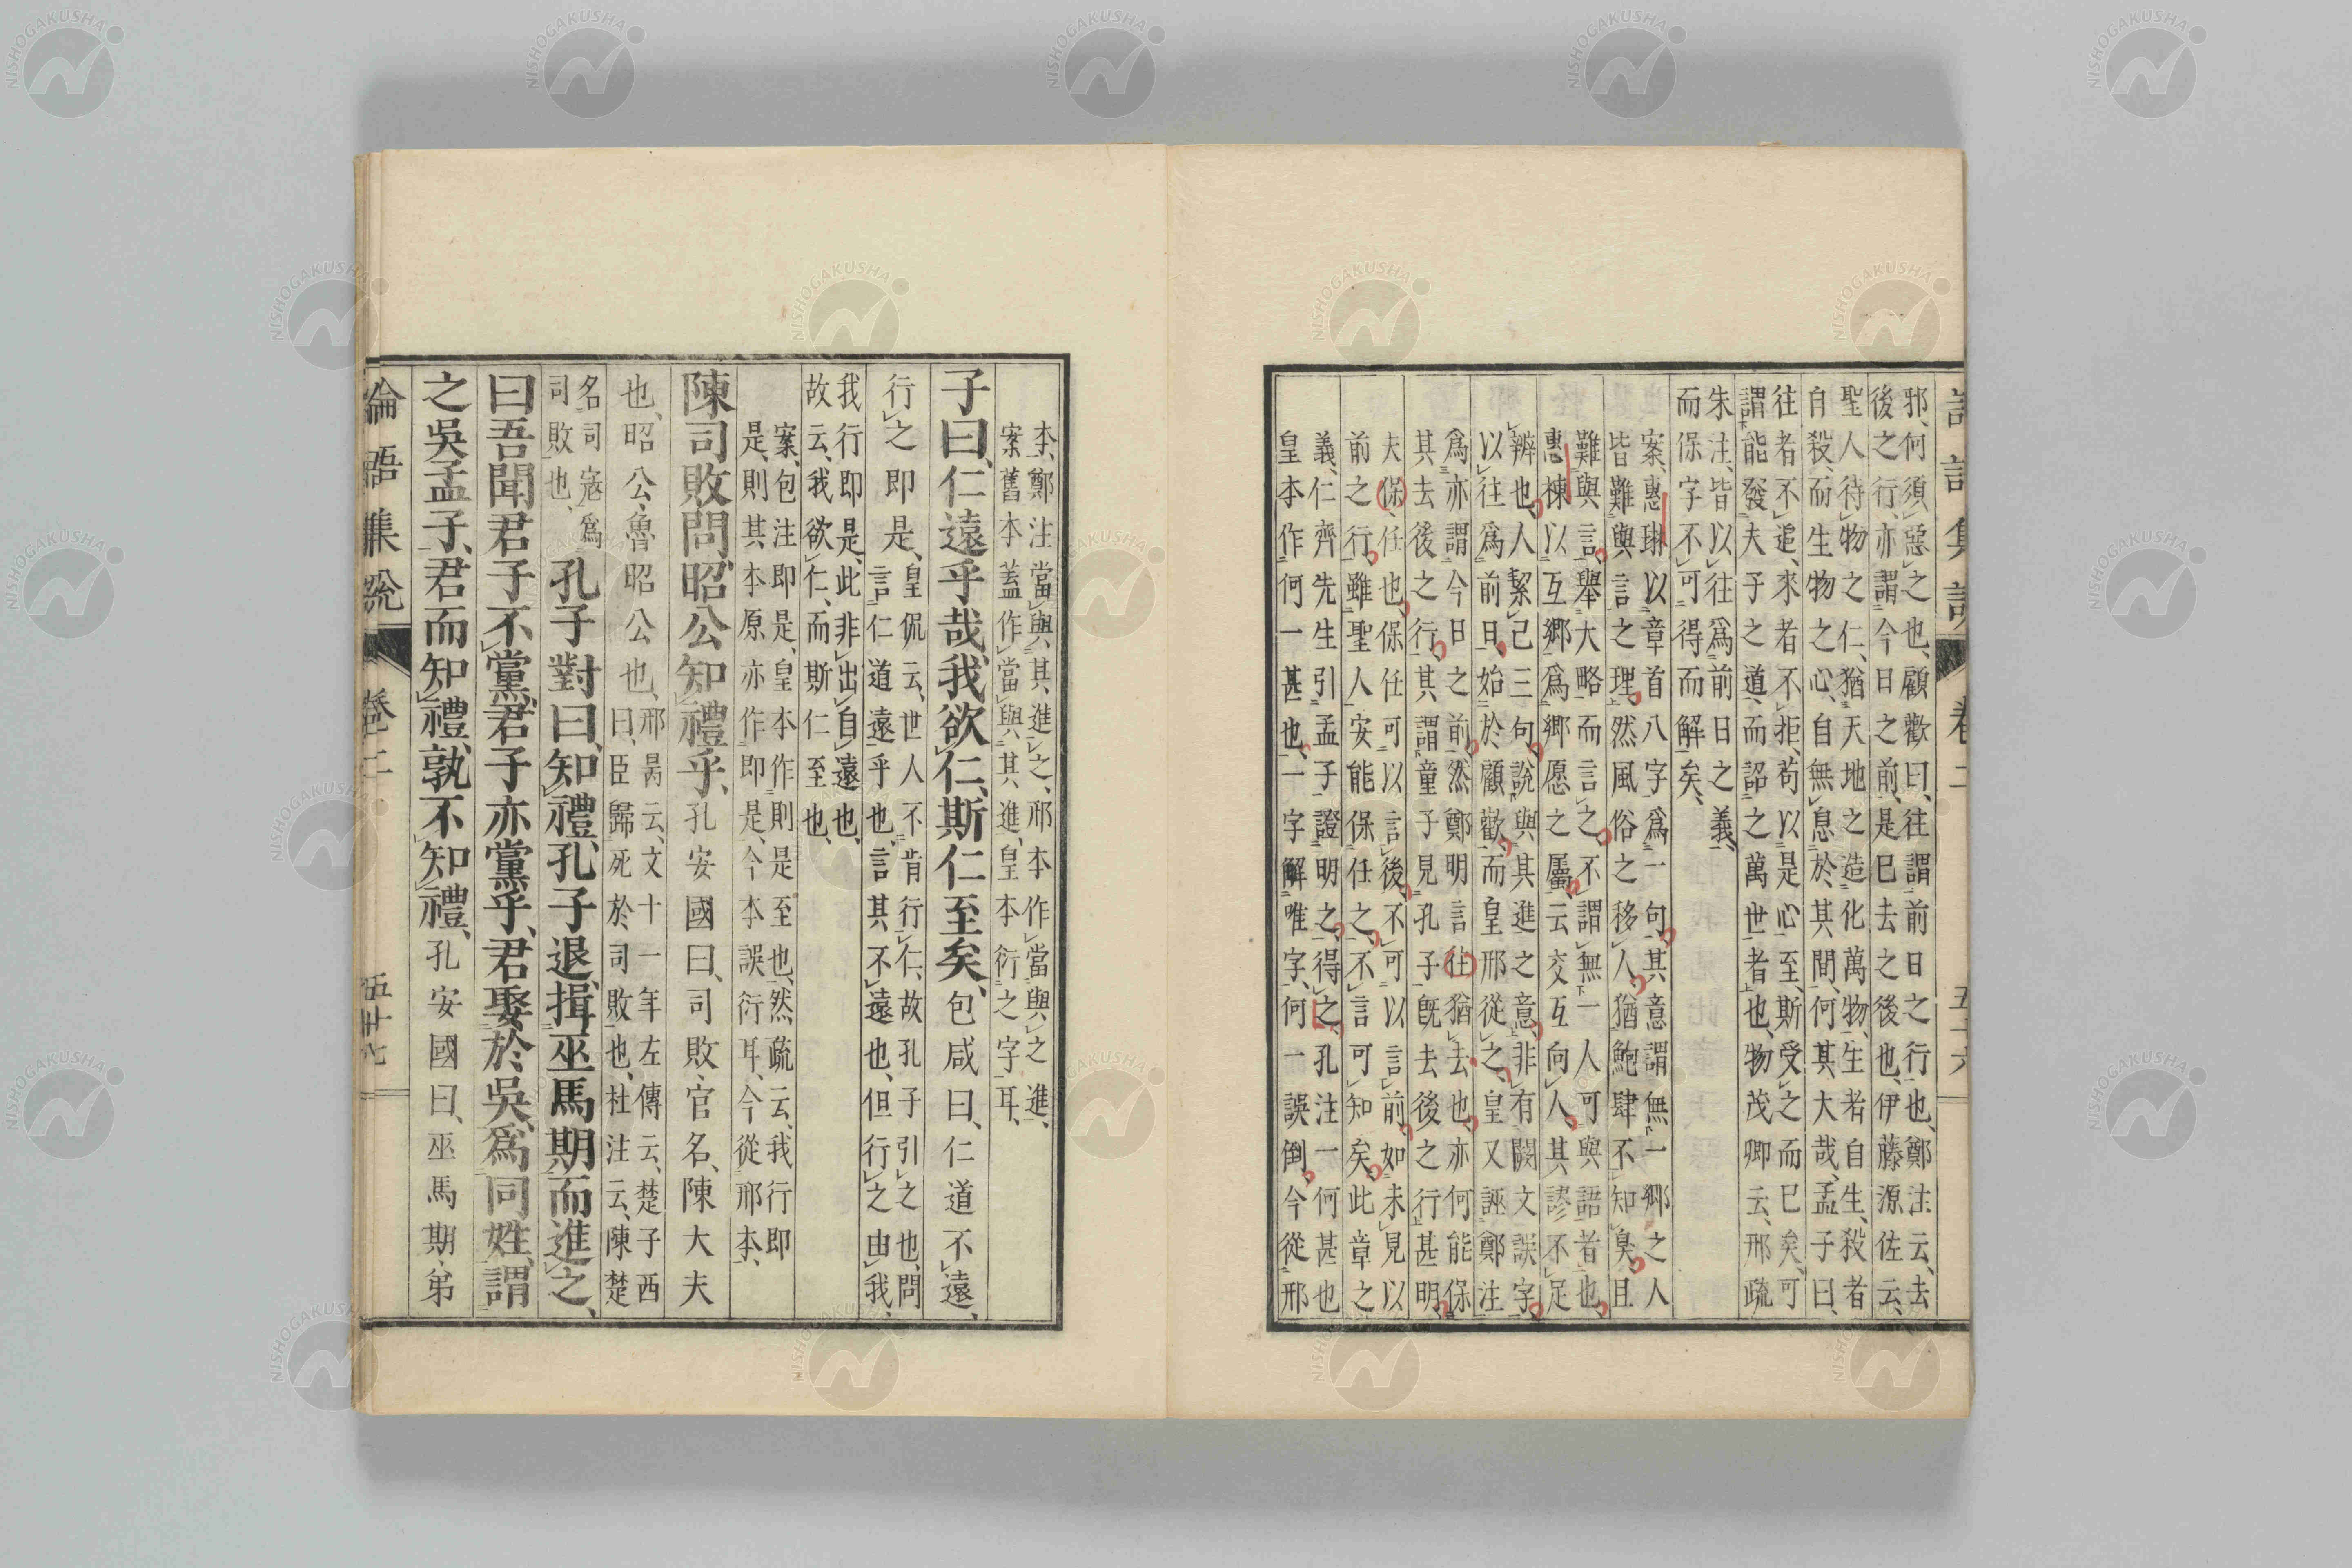 論語集說 卷二 五十六
邪、何須惡之也、顧歡曰、往謂前日之行也、鄭注云、去
後之行、亦謂今日之前、是已去之後也、伊藤源佐云、
聖人待物之仁、猶天地之造化萬物、生者自生、殺者
自殺、而生物之心、自無息於其間、何其大哉、孟子曰、
往者不追、來者不拒、苟以是心至、斯受之而已矣、可
謂能發夫子之道、而詔之萬世者也、物茂卿云、邢疏
朱注、皆以往爲前日之義、
而保字不可得而解矣、
案、惠琳以章首八字爲一句、其意謂無一鄉之人
皆難與言之理、然風俗之移人、猶鮑肆不知臭、且
難與言、舉大略而言之、不謂無一人可與語者也、
惠棟以互鄉爲鄉愿之屬、云交互向人、其謬不足
辨也、人絜己三句、說與其進之意、非有闕文誤字、
以往爲前日、始於顧歡、而皇邢從之、皇又誣鄭注
爲亦謂今日之前、然鄭明言往猶去也、亦何能保
其去後之行、其謂童子見孔子既去後之行甚明、
夫保、任也、保任可以言後、不可以言前、如未見以
前之行、雖聖人安能保任之、不言可知矣、此章之
義、仁齊先生引孟子證明之、得之、孔注一何甚也
皇本作何一甚也、一字解唯字、何一誤倒、今從邢
本、鄭注當與其進之、邢本作當與之進、
案舊本蓋作當與其進、皇本衍之字耳、
子曰、仁遠乎哉、我欲仁、斯仁至矣、包咸曰、仁道不遠、
行之即是、皇侃云、世人不肯行仁、故孔子引之也、問
言仁道遠乎也、言其不遠也、但行之由我、
我行即是、此非出自遠也、
故云、我欲仁、而斯仁至也、
案、包注即是、皇本作則是至也、然疏云、我行即
是、則其本原亦作即是、今本誤衍耳、今從邢本、
陳司敗問、昭公知禮乎、孔安國曰、司敗、官名、陳大夫
也、昭公、魯昭公也、邢昺云、文十一年左傳云、楚子西
曰、臣歸死於司敗也、杜注云、陳楚
名司寇爲
司敗也、孔子對曰、知禮、孔子退、揖巫馬期而進之、
曰、吾聞君子不黨、君子亦黨乎、君娶於吳、爲同姓、謂
之吳孟子、君而知禮、孰不知禮、孔安國曰、巫馬期、弟
論語集說 卷二 五十七